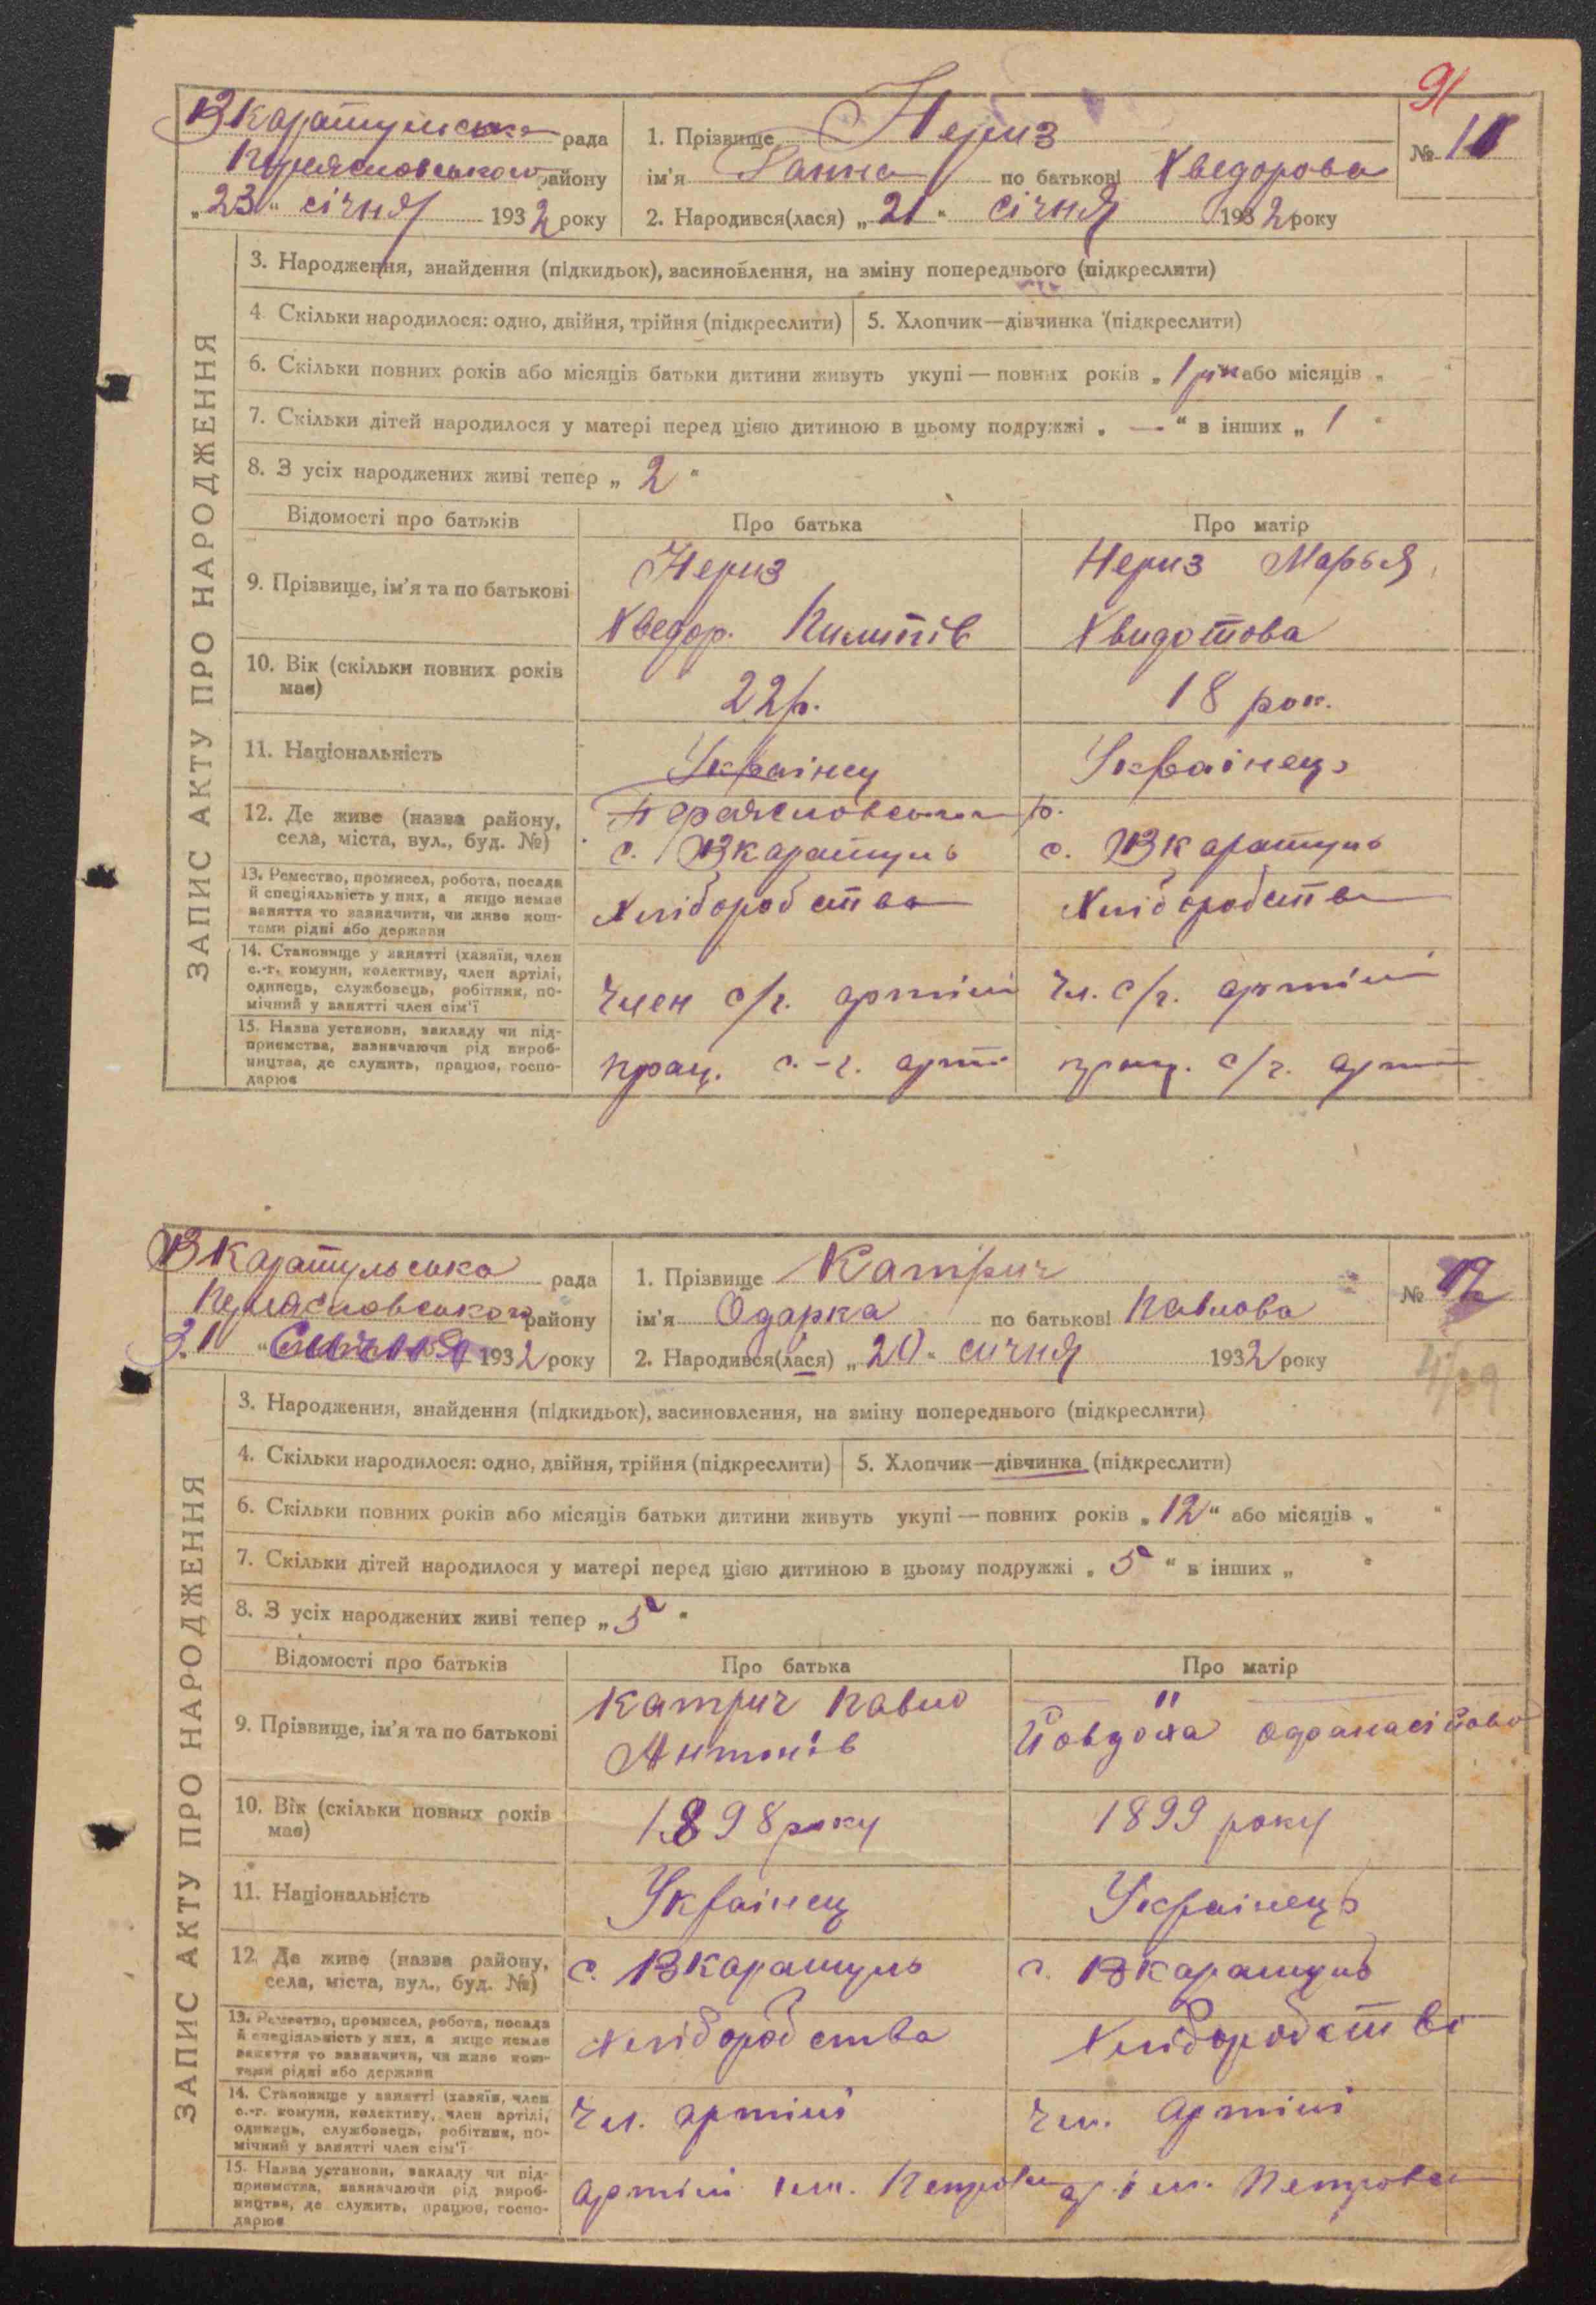 91
ВКаратульська рада
Переяславського району
„23“ січня 1932 року
1. Прізвище Нериз
ім'я Ганна по батькові Хведорова
№ 11
2. Народився(лася) „21“ січня 1932 року
ЗАПИС АКТУ ПРО НАРОДЖЕННЯ
3. Народження, знайдення (підкидьок), засиновлення, на зміну попереднього (підкреслити)
4. Скільки народилося: одно, двійня, трійня (підкреслити) 5. Хлопчик—дівчинка (підкреслити)
6. Скільки повних років або місяців батьки дитини живуть укупі — повних років „1 рік або місяців „ “
7. Скільки дітей народилося у матері перед цією дитиною в цьому подружжі „ — “ в інших „ 1 “
8. З усіх народжених живі тепер „ 2 “
Відомості про батьків Про батька Про матір
9. Прізвище, ім'я та по батькові
Нериз
Хведор. Пилипів
Нериз Марья
Хвидотова
10. Вік (скільки повних років має)
22 р.
18 рок.
11. Національність
Українец
Українець
12. Де живе (назва району,
села, міста, вул., буд. №)
р.
с. ВКаратуль
с. ВКаратуль
13. Ремество, промисел, робота, посада
й спеціяльність у них, а якщо немає
заняття то зазначити, чи живе кош-
тами рідні або держави
Хліборобства
Хліборобства
14. Становище у занятті (хазяїн, член
с.-г. комуни, колективу, член артілі,
одинець, службовець, робітник, по-
мічний у занятті член сім'ї
Член с/г. артілі
Чл. с/г. артілі
15. Назва установи, закладу чи під-
приємства, зазначаючи рід вироб-
ництва, де служить, працює, госпо-
дарює
прац. с.-г. арт
прац. с/г. арт
ВКаратульська рада
Переяславського району
31 “ 1932 року
1. Прізвище Катрич
ім'я Одарка по батькові Павлова
№ 12
2. Народився(лася) „20“ сичня 1932 року
ЗАПИС АКТУ ПРО НАРОДЖЕННЯ
3. Народження, знайдення (підкидьок), засиновлення, на зміну попереднього (підкреслити)
4. Скільки народилося: одно, двійня, трійня (підкреслити) 5. Хлопчик—дівчинка (підкреслити)
6. Скільки повних років або місяців батьки дитини живуть укупі — повних років „12“ або місяців „ “
7. Скільки дітей народилося у матері перед цією дитиною в цьому подружжі „ 5 “ в інших „ “
8. З усіх народжених живі тепер „ 5 “
Відомості про батьків Про батька Про матір
9. Прізвище, ім'я та по батькові
Катрич Павло
Антонів
"
Йовдоха
10. Вік (скільки повних років має)
1898 року
1899 року
11. Національність
Українец
Українець
12. Де живе (назва району,
села, міста, вул., буд. №)
с. ВКаратуль
с. ВКаратуль
13. Ремество, промисел, робота, посада
й спеціяльність у них, а якщо немає
заняття то зазначити, чи живе кош-
тами рідні або держави
Хліборобства
Хліборобства
14. Становище у занятті (хазяїн, член
с.-г. комуни, колективу, член артілі,
одинець, службовець, робітник, по-
мічний у занятті член сім'ї
Чл. артілі
Чл. артілі
15. Назва установи, закладу чи під-
приємства, зазначаючи рід вироб-
ництва, де служить, працює, госпо-
дарює
артілі ім. Петровск
ар. ім. Петровск